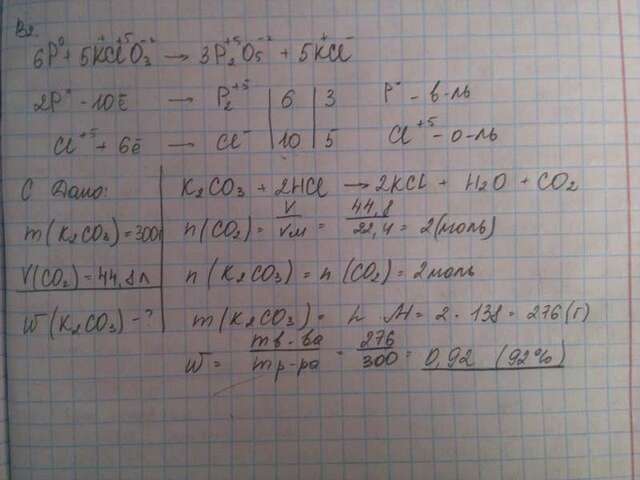 В2.
6P⁰ + 5K⁺Cl⁺⁵O₃⁻² → 3P₂⁺⁵O₅⁻² + 5K⁺Cl⁻
2P⁰ - 10ē → P₂⁺⁵ | 6 | 3 P⁰ - в-ль
Cl⁺⁵ + 6ē → Cl⁻ | 10 | 5 Cl⁺⁵ - о-ль
С Дано:
m(K₂CO₃) = 300г
V(CO₂) = 44,8л
W(K₂CO₃) - ?
K₂CO₃ + 2HCl → 2KCl + H₂O + CO₂
n(CO₂) = V/Vм = 44,8/22,4 = 2(моль)
n(K₂CO₃) = n(CO₂) = 2моль
m(K₂CO₃) = n · M = 2 · 138 = 276(г)
W = mв-ва/mр-ра = 276/300 = 0,92 (92%)